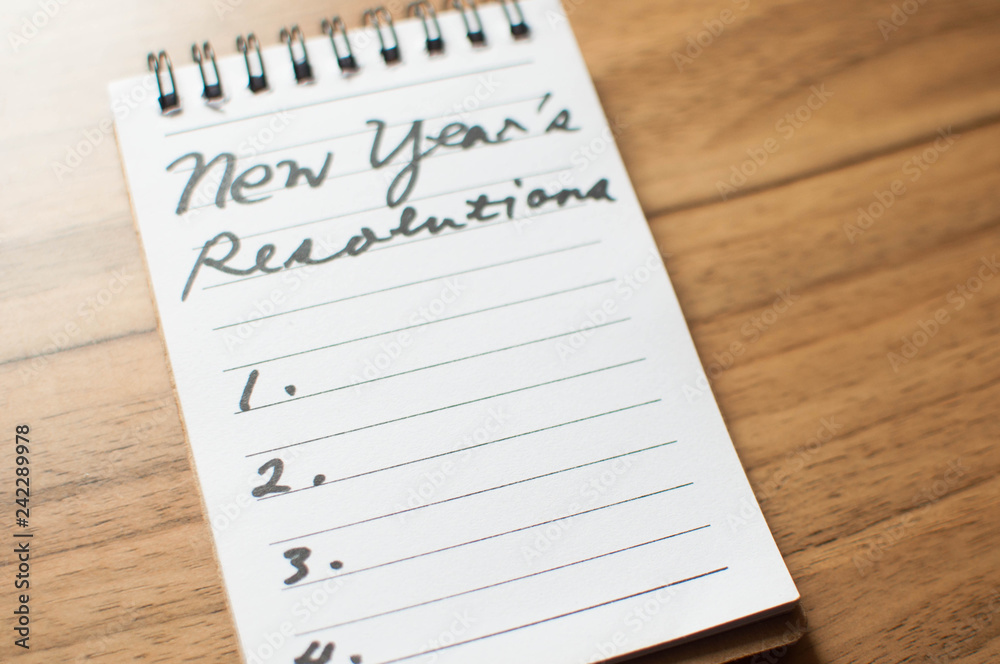 New Year's
Resolutions
1.
2.
3.
4.
Adobe Stock | #242289978